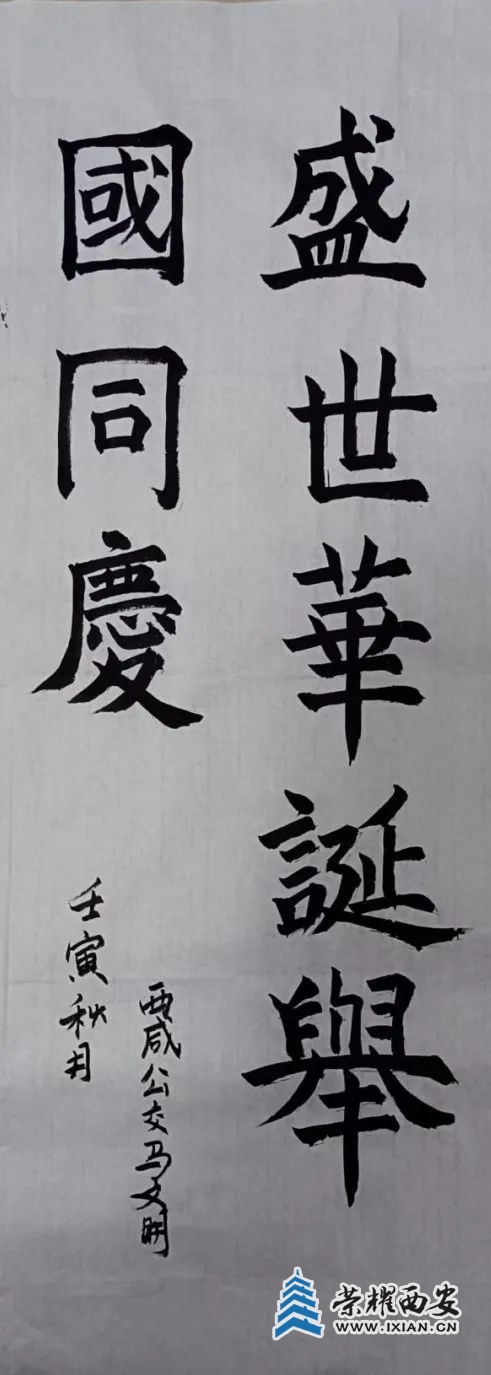 盛世華誕舉
國同慶
西咸公交马文明
壬寅秋月
荣耀西安
WWW.IXIAN.CN